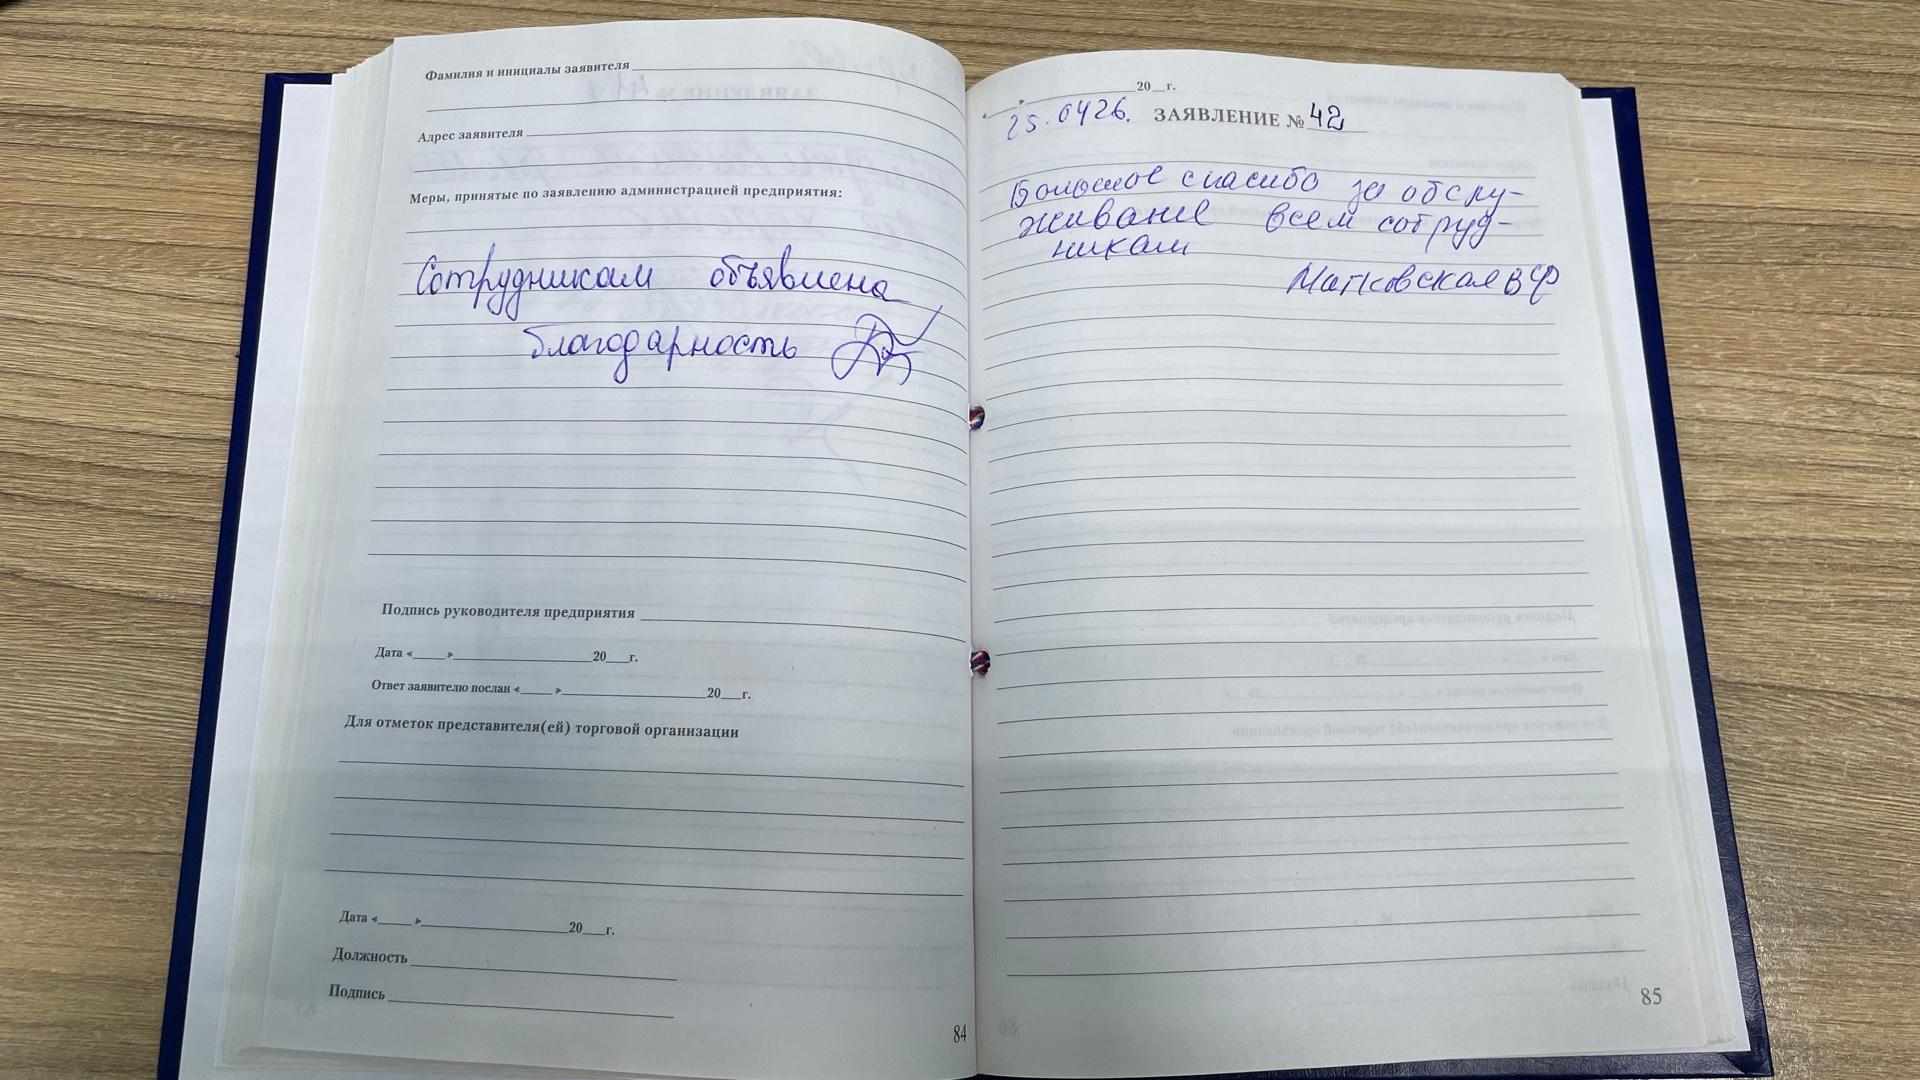 Фамилия и инициалы заявителя
Адрес заявителя
Меры, принятые по заявлению администрацией предприятия:
Сотрудникам объявлена
благодарность
Подпись руководителя предприятия
Дата «____»____________20___г.
Ответ заявителю послан «____»____________20___г.
Для отметок представителя(ей) торговой организации
Дата «____»____________20___г.
Должность
Подпись
84
«____»____________20__г.
25.0426. ЗАЯВЛЕНИЕ № 42
Большое спасибо за обслу-
живание всем сотруд-
никам
Матковская ВФ
85